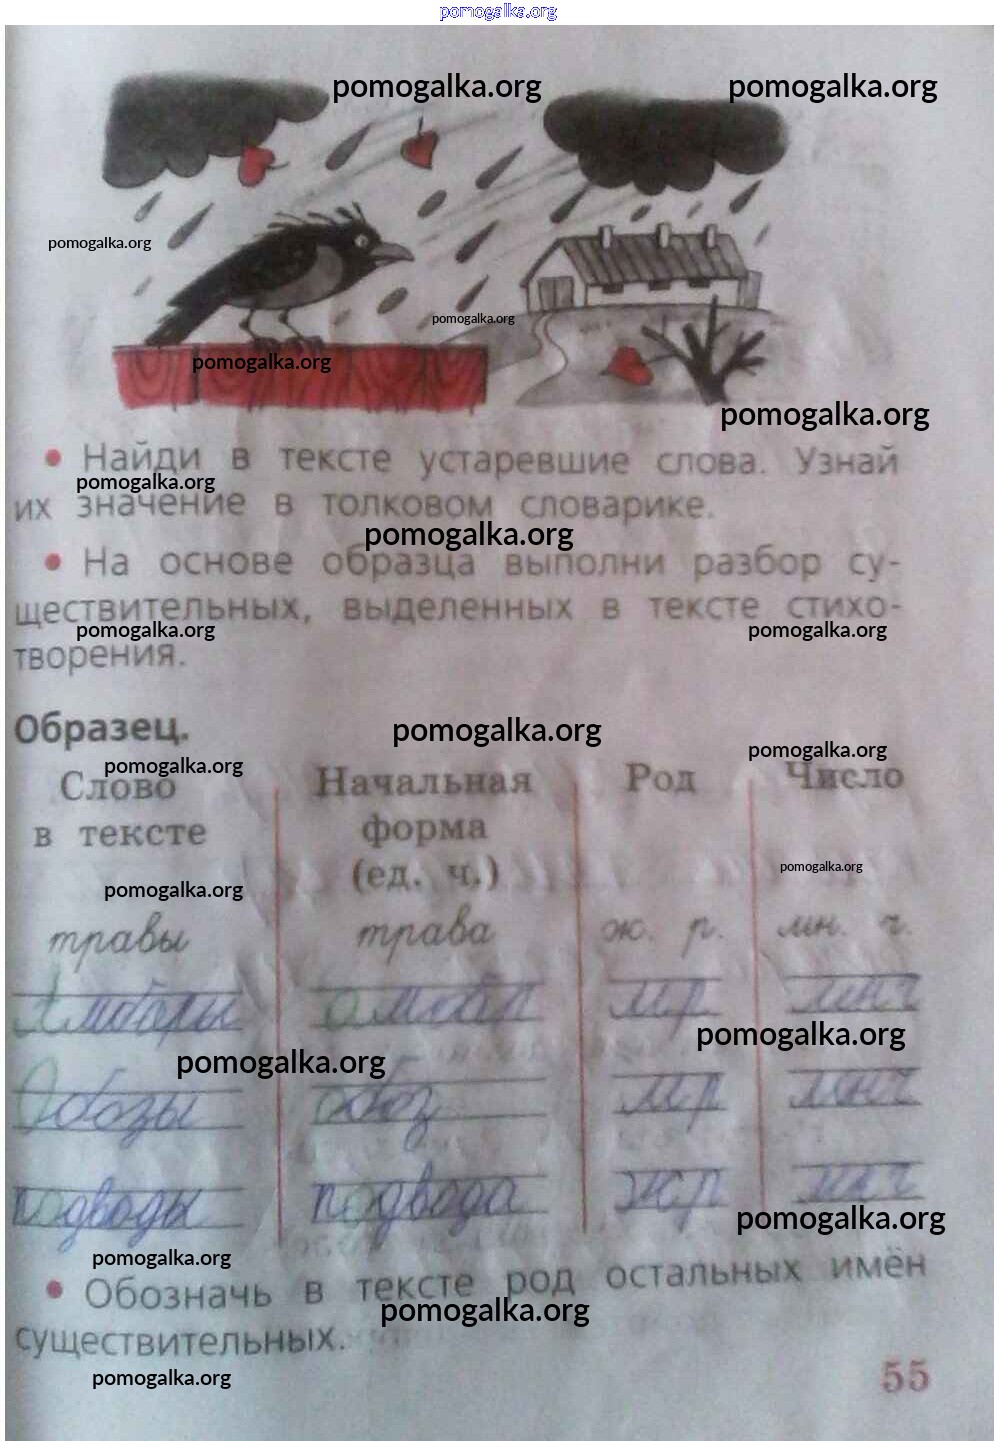 pomogalka.org
pomogalka.org pomogalka.org
pomogalka.org
pomogalka.org
pomogalka.org
pomogalka.org
• Найди в тексте устаревшие слова. Узнай
pomogalka.org
их значение в толковом словарике.
pomogalka.org
• На основе образца выполни разбор су-
ществительных, выделенных в тексте стихо-
pomogalka.org pomogalka.org
творения.
Образец.
pomogalka.org
pomogalka.org
pomogalka.org
Слово Начальная Род Число
в тексте форма
(ед. ч.)
pomogalka.org
pomogalka.org
травы трава ж. р. мн. ч.
Амбары амбар м р мн ч
pomogalka.org
pomogalka.org
Обозы обоз м р мн ч
подводы подвода ж р мн ч
pomogalka.org
pomogalka.org
• Обозначь в тексте род остальных имён
pomogalka.org
существительных.
pomogalka.org
55